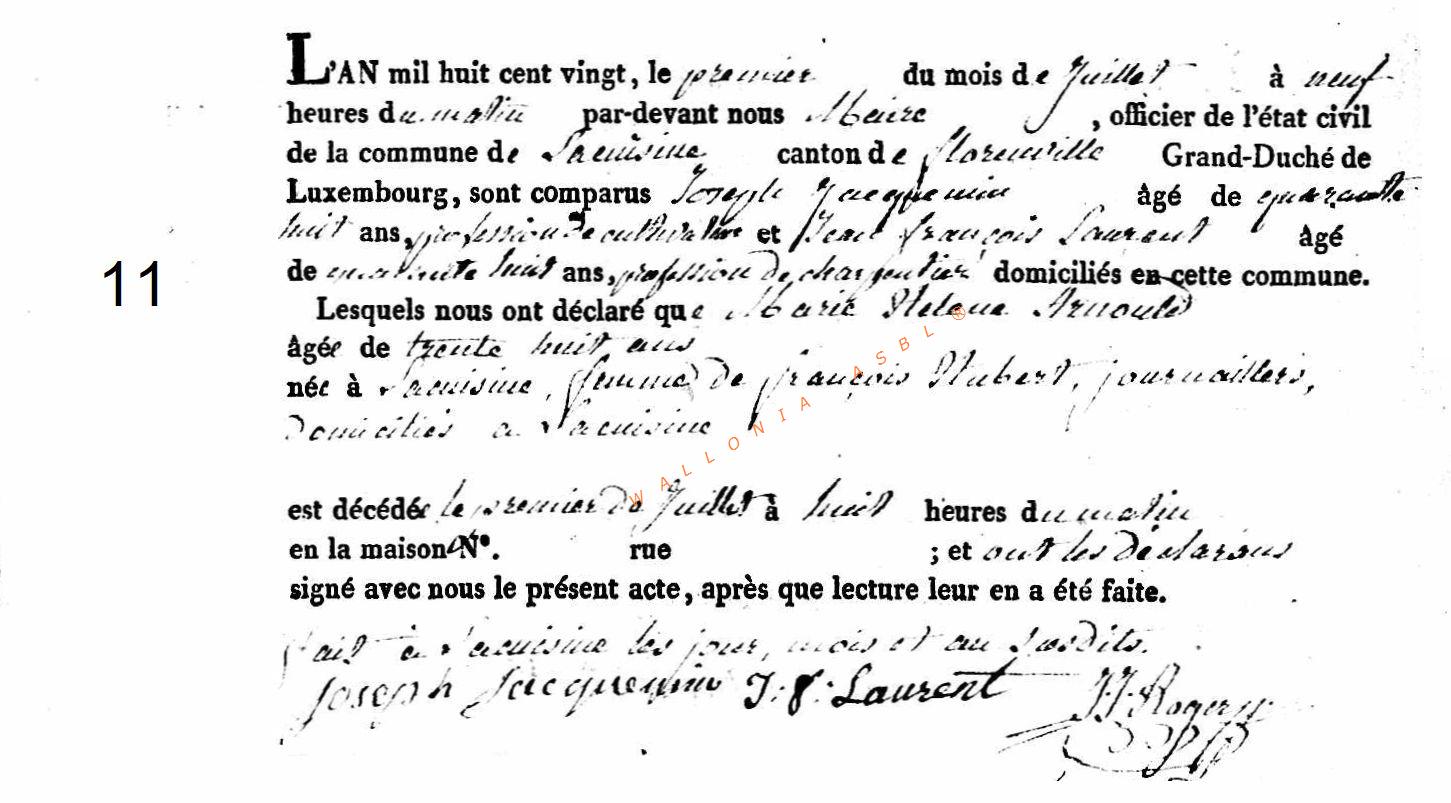 L'AN mil huit cent vingt, le premier du mois de Juillet à neuf
heures du matin par-devant nous Maire , officier de l'état civil
de la commune de Lacuisine canton de florenville Grand-Duché de
Luxembourg, sont comparus Joseph Jacquemin âgé de quarante
huit ans, profession de cultivateur et Jean françois Laurent âgé
de quarante huit ans, profession de charpentier domiciliés en cette commune.
11
Lesquels nous ont déclaré que Marie Helene Arnould
âgée de trente huit ans
née à Lacuisine, femme de françois Hubert, journailliers,
Domiciliés a Lacuisine
WALLONIA ASBL ®
est décédée le premier De Juillet à huit heures du matin
en la maison N°. rue ; et ont les Déclarans
signé avec nous le présent acte, après que lecture leur en a été faite.
fait à Lacuisine les jour, mois et an susdits.
Joseph Jacquemin J: f: Laurent